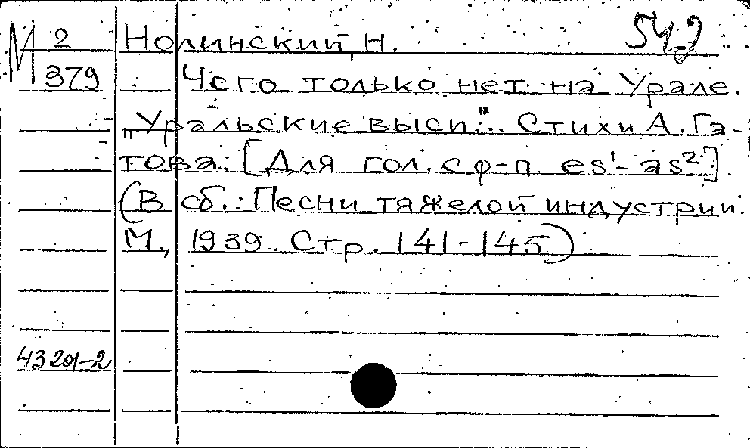 М 2/379 Нолинский, Н. 54.2
Чего только нет на Урале.
"Уральские высп". Стихи А. Га-
това. [Для гол. с ф-п. es¹-as²]
(В сб.: Песни тяжелой индустрии.
М., 1939. Стр. 141-145)